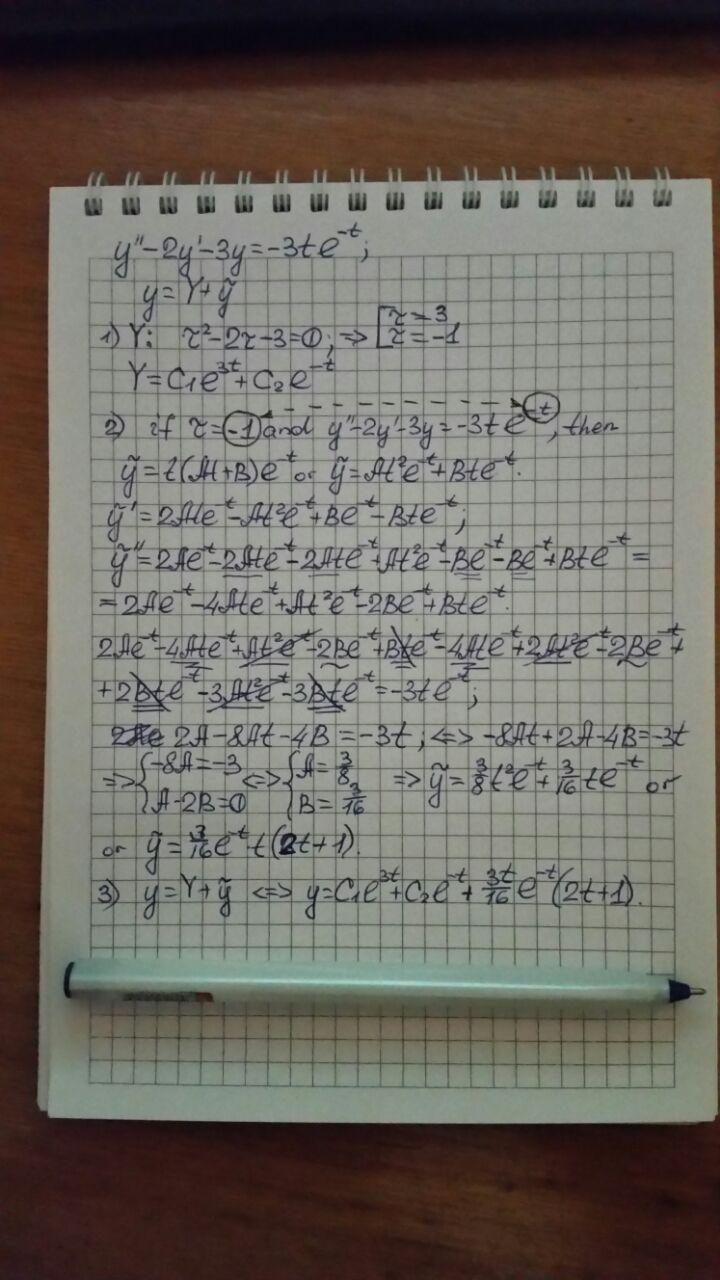 y''-2y'-3y=-3te^{-t};
y=Y+ỹ
1) Y: r²-2r-3=0; => [r=3 r=-1
Y=C₁e^{3t}+C₂e^{-t}
2) if r=-1 and y''-2y'-3y=-3te^{-t}, then
ỹ=t(At+B)e^{-t} or ỹ=At²e^{-t}+Bte^{-t}.
ỹ'=2Ate^{-t}-At²e^{-t}+Be^{-t}-Bte^{-t};
ỹ''=2Ae^{-t}-2Ate^{-t}-2Ate^{-t}+At²e^{-t}-Be^{-t}-Be^{-t}+Bte^{-t}=
=2Ae^{-t}-4Ate^{-t}+At²e^{-t}-2Be^{-t}+Bte^{-t}.
2Ae^{-t}-4Ate^{-t}+At²e^{-t}-2Be^{-t}+Bte^{-t}-4Ate^{-t}+2At²e^{-t}-2Be^{-t}+
+2Bte^{-t}-3At²e^{-t}-3Bte^{-t}=-3te^{-t};
2A-8At-4B=-3t; <=> -8At+2A-4B=-3t
=> {-8A=-3 A-2B=0 <=> {A=3/8 B=3/16 => ỹ=3/8t²e^{-t}+3/16te^{-t} or
or ỹ=3/16e^{-t}t(2t+1).
3) y=Y+ỹ <=> y=C₁e^{3t}+C₂e^{-t}+3t/16e^{-t}(2t+1).